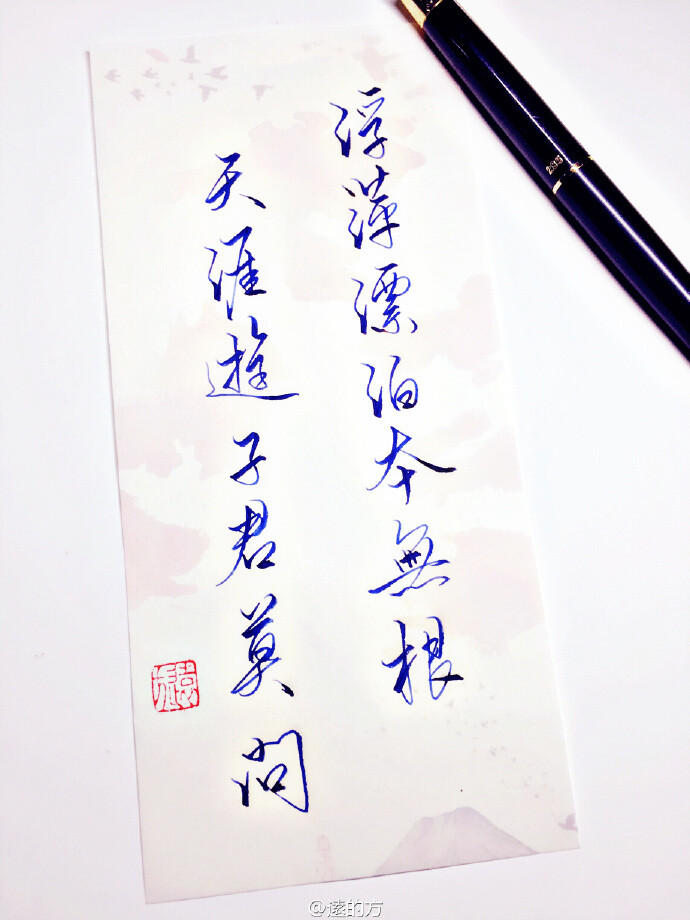 浮萍漂泊本無根
天涯遊子君莫問
@遠的方